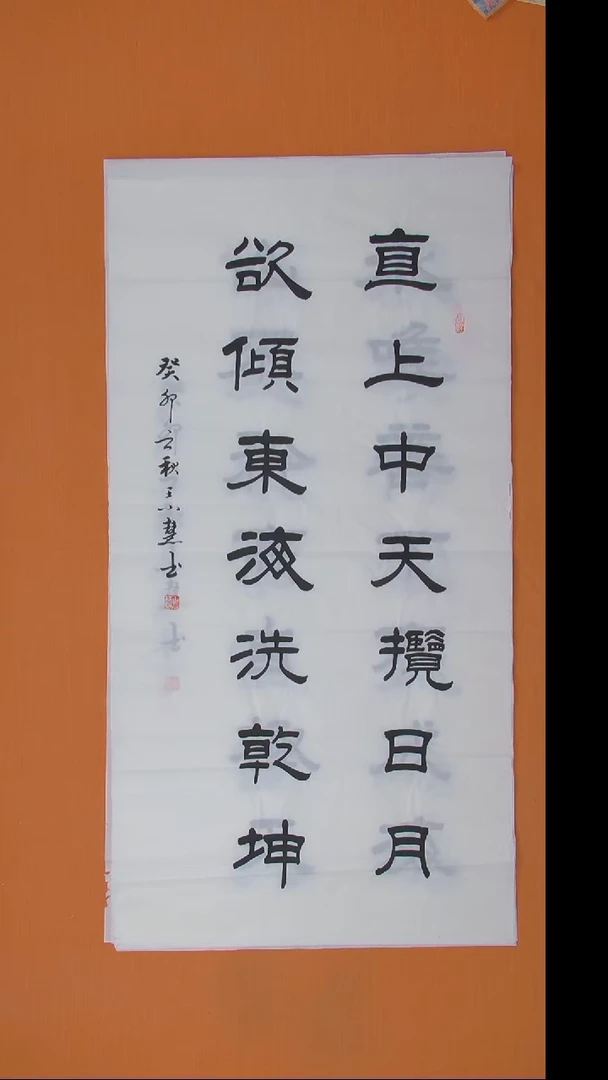 直上中天攬日月
欲傾東海洗乾坤
癸卯立秋 慧书